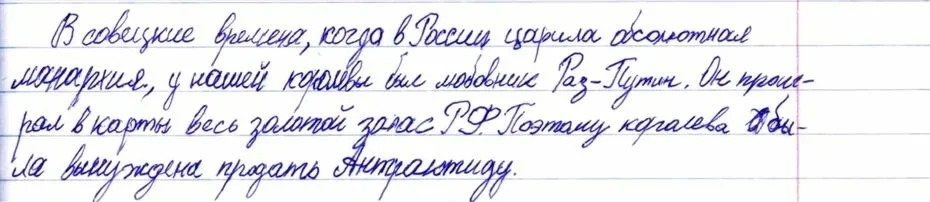 В совецкие времена, когда в России царила абсолютная
манархия, у нашей королевы был любовник Раз-Путин. Он проиг-
рал в карты весь золотой запас РФ. Поэтому королева бы-
ла вынуждена продать Антрактиду.